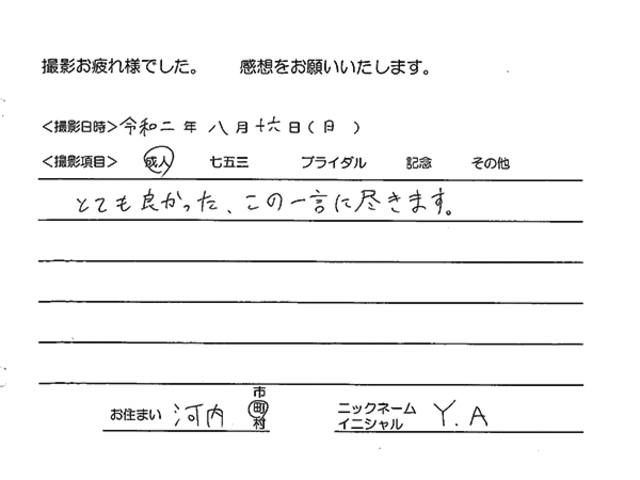 撮影お疲れ様でした。 感想をお願いいたします。
＜撮影日時＞令和二年八月十六日(日)
＜撮影項目＞ 成人 七五三 ブライダル 記念 その他
とても良かった、この一言に尽きます。
お住まい 河内 市町村 ニックネーム イニシャル Y.A